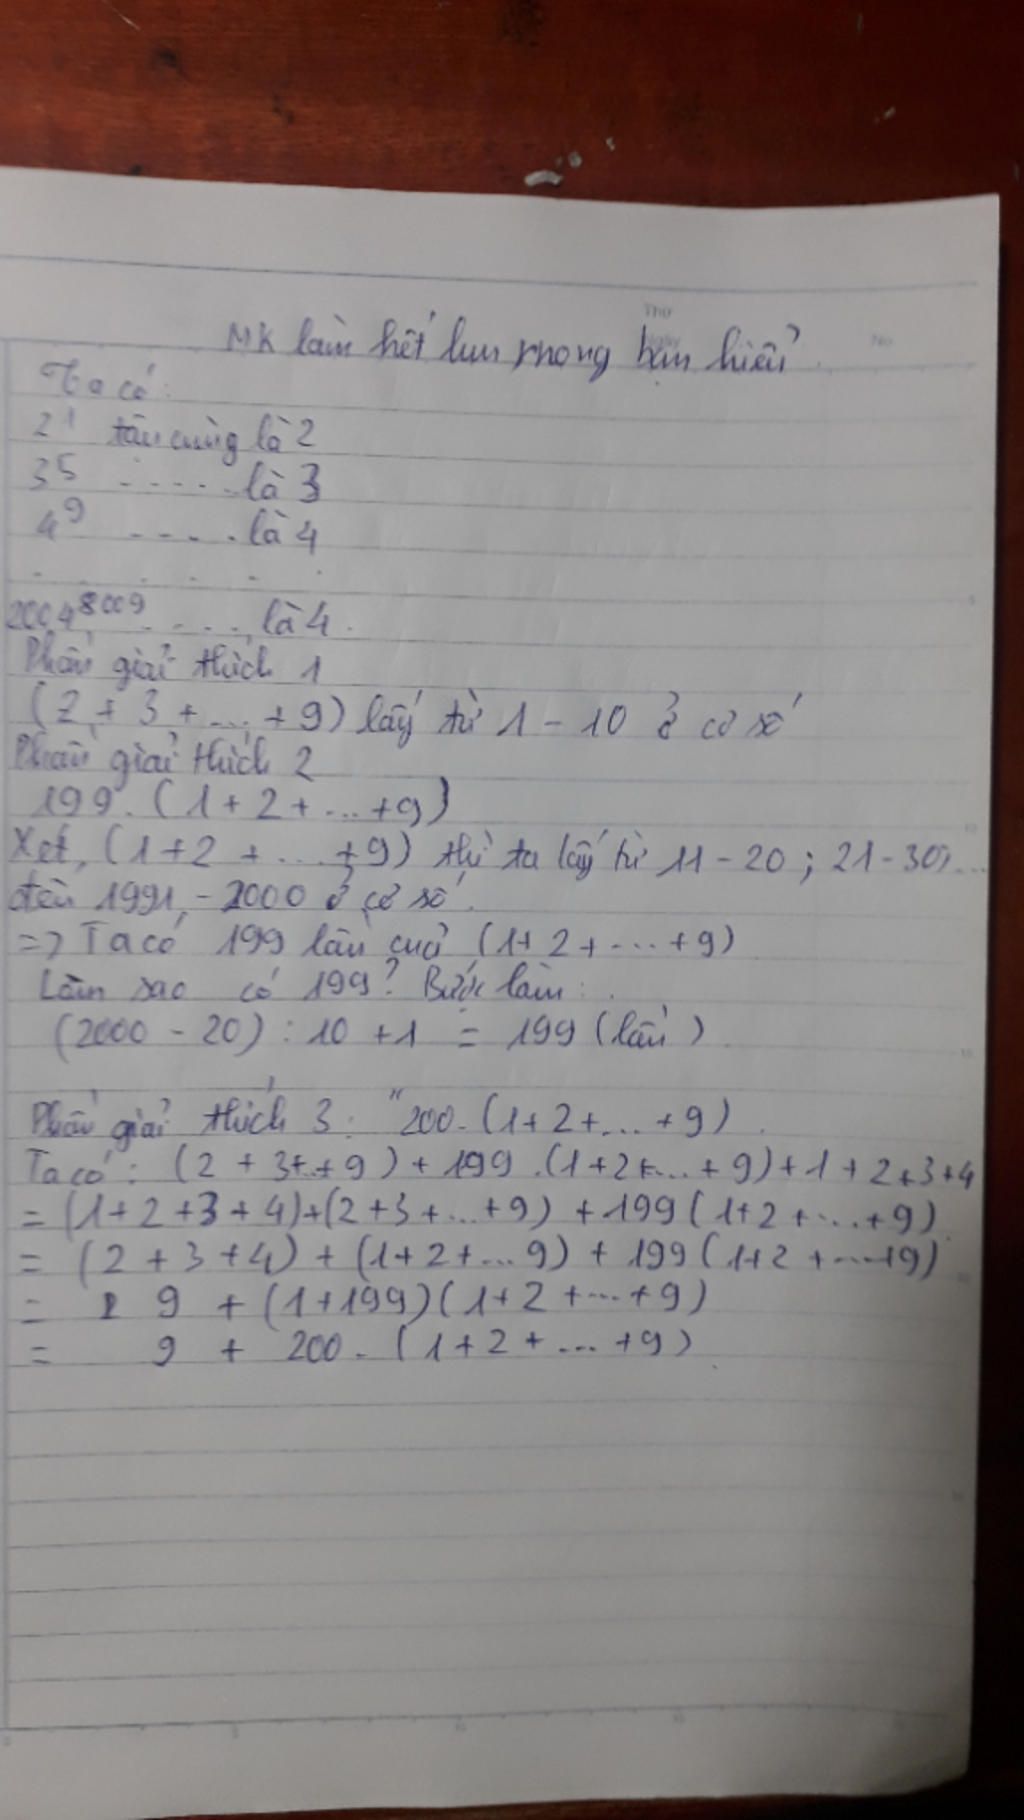 MK làm hết lun mong bạn hiểu
Ta có:
2¹ tận cùng là 2
3⁵ ..... là 3
4⁹ ..... là 4
. . . . . .
2004⁸⁰⁰⁹ ..... là 4.
Phần giải thích 1
(2 + 3 + ... + 9) lấy từ 1 - 10 ở cơ số
Phần giải thích 2
199. (1 + 2 + ... + 9)
Xét, (1+2 + ... + 9) thì ta lấy từ 11 - 20 ; 21 - 30; ...
đến 1991 - 2000 ở cơ số.
=> Ta có 199 lần của (1+ 2 + ... + 9)
Làm sao có 199? Bước làm:
(2000 - 20) : 10 + 1 = 199 (lần).
Phần giải thích 3: "200. (1+2+... + 9).
Ta có: (2 + 3+..+ 9) + 199 .(1+2+... + 9) + 1 + 2 + 3 + 4
= (1+2 +3 + 4)+(2+3 + ... +9) + 199 (1+2 + ... + 9)
= (2 + 3 + 4) + (1+2 + ... 9) + 199 (1+2 + ... +9)
= 9 + (1+199)(1+2 + ... + 9)
= 9 + 200 . (1 + 2 + ... + 9)